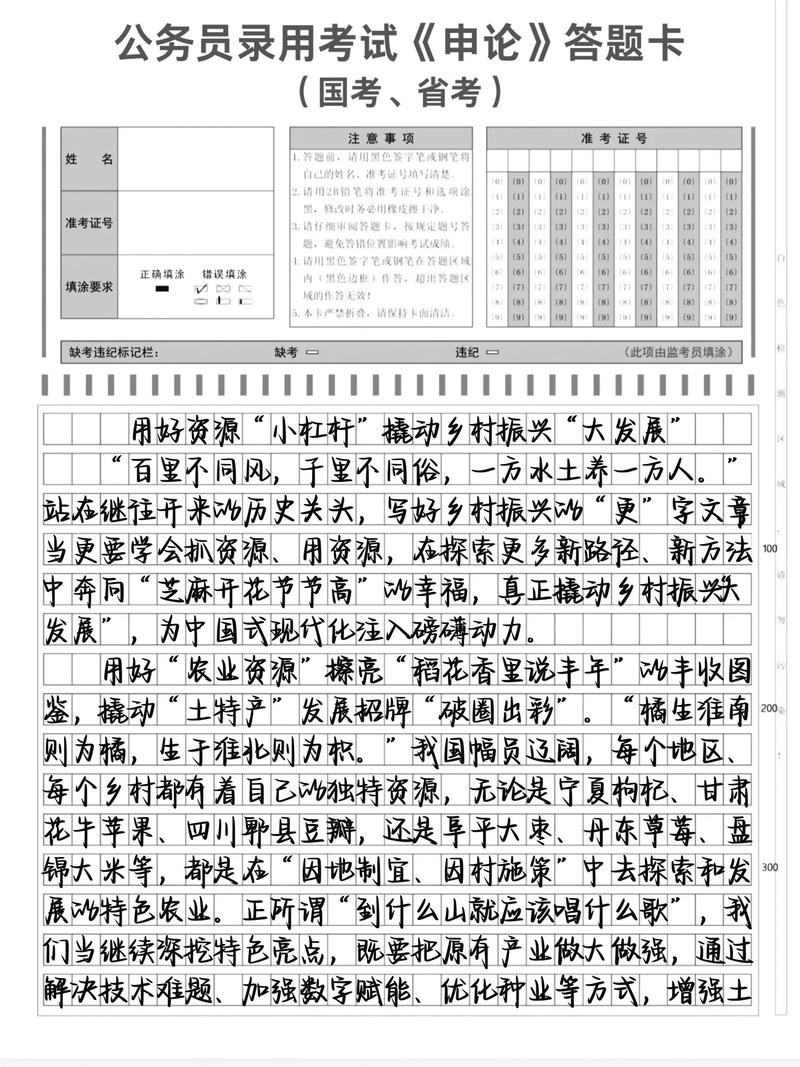 公务员录用考试《申论》答题卡
（国考、省考）
姓 名
准考证号
填涂要求
正确填涂 错误填涂
注意事项
1.答题前，请用黑色签字笔或钢笔将
自己的姓名、准考证号填写清楚。
2.请用2B铅笔将准考证号和选项涂
黑，修改时务必用橡皮擦干净。
3.请仔细审阅答题卡，按规定题号答
题，避免答错位置影响考试成绩。
4.请用黑色签字笔或钢笔在答题区域
内（黑色边框）作答，超出答题区
域的作答无效！
5.本卡严禁折叠，请保持卡面清洁。
准考证号
(0) (0) (0) (0) (0) (0) (0) (0) (0) (0) (0) (0)
(1) (1) (1) (1) (1) (1) (1) (1) (1) (1) (1) (1)
(2) (2) (2) (2) (2) (2) (2) (2) (2) (2) (2) (2)
(3) (3) (3) (3) (3) (3) (3) (3) (3) (3) (3) (3)
(4) (4) (4) (4) (4) (4) (4) (4) (4) (4) (4) (4)
(5) (5) (5) (5) (5) (5) (5) (5) (5) (5) (5) (5)
(6) (6) (6) (6) (6) (6) (6) (6) (6) (6) (6) (6)
(7) (7) (7) (7) (7) (7) (7) (7) (7) (7) (7) (7)
(8) (8) (8) (8) (8) (8) (8) (8) (8) (8) (8) (8)
(9) (9) (9) (9) (9) (9) (9) (9) (9) (9) (9) (9)
缺考违纪标记栏： 缺考 违纪 （此项由监考员填涂）
用好资源“小杠杆”撬动乡村振兴“大发展”
“百里不同风，千里不同俗，一方水土养一方人。”
站在继往开来的历史关头，写好乡村振兴的“更”字文章
当更要学会抓资源、用资源，在探索更多新路径、新方法
100
中奔向“芝麻开花节节高”的幸福，真正撬动乡村振兴“大
发展”，为中国式现代化注入磅礴动力。
用好“农业资源”擦亮“稻花香里说丰年”的丰收图
鉴，撬动“土特产”发展招牌“破圈出彩”。“橘生淮南
200
则为橘，生于淮北则为枳。”我国幅员辽阔，每个地区、
每个乡村都有着自己的独特资源，无论是宁夏枸杞、甘肃
花牛苹果、四川郫县豆瓣，还是阜平大枣、丹东草莓、盘
锦大米等，都是在“因地制宜、因村施策”中去探索和发
300
展的特色农业。正所谓“到什么山就应该唱什么歌”，我
们当继续深挖特色亮点，既要把原有产业做大做强，通过
解决技术难题、加强数字赋能、优化种业等方式，增强土
白色检测区域，请勿污染！